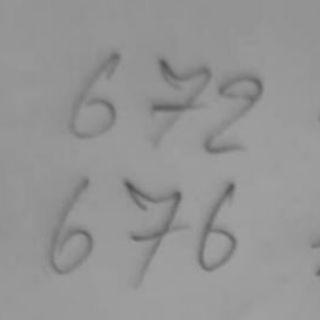 672
676